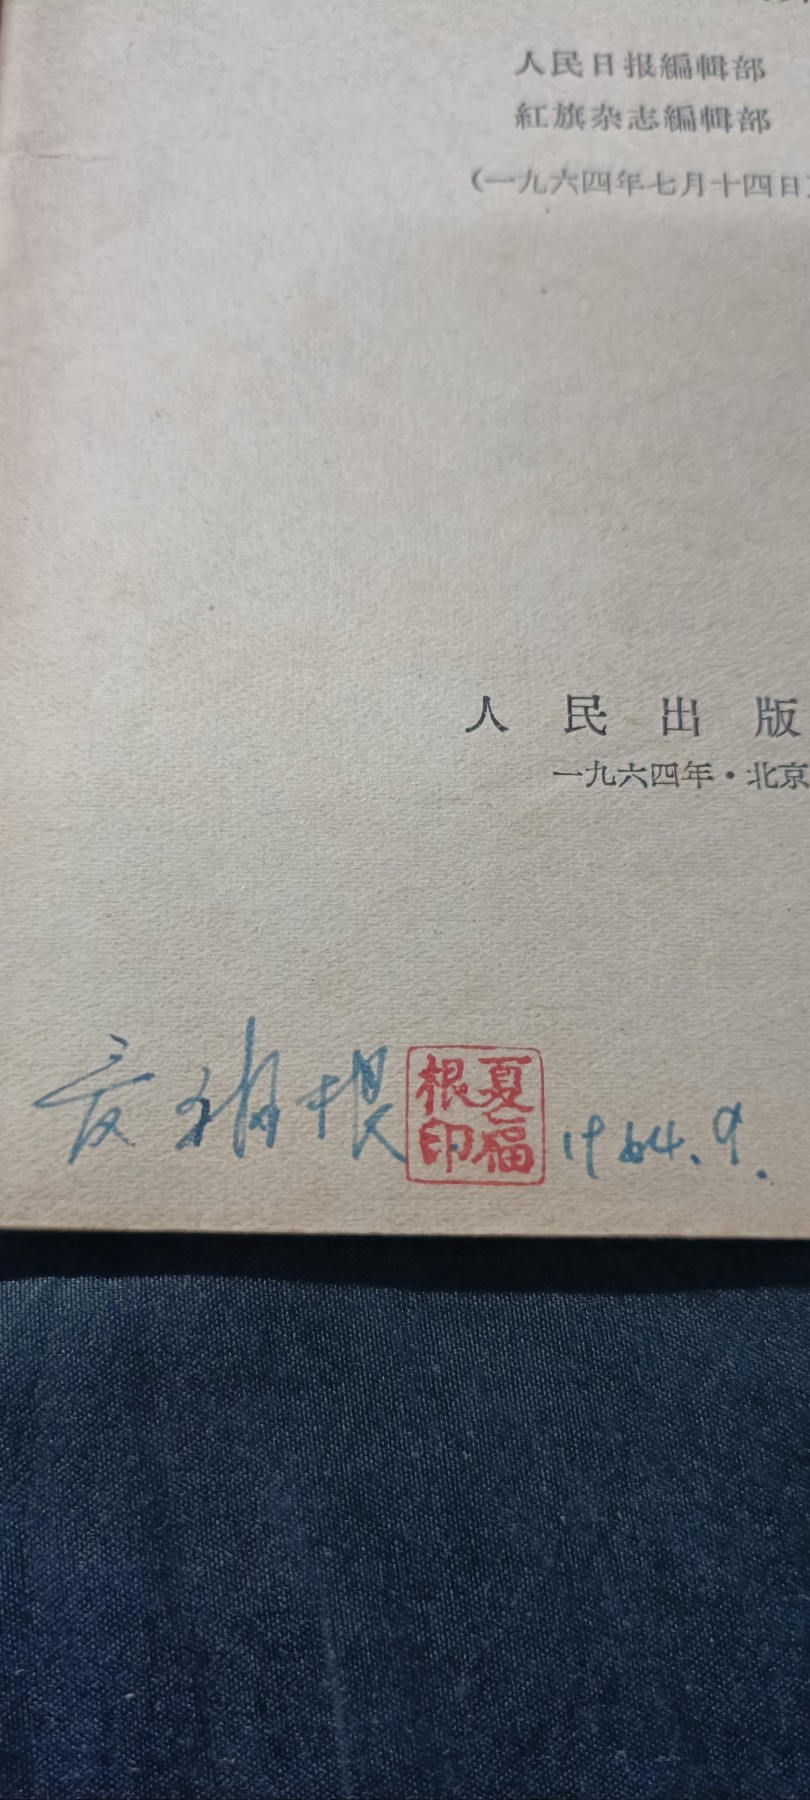 人民日报編輯部
紅旗杂志編輯部
(一九六四年七月十四日)
人民出版
一九六四年·北京
夏福根
夏福根印
1964.9.